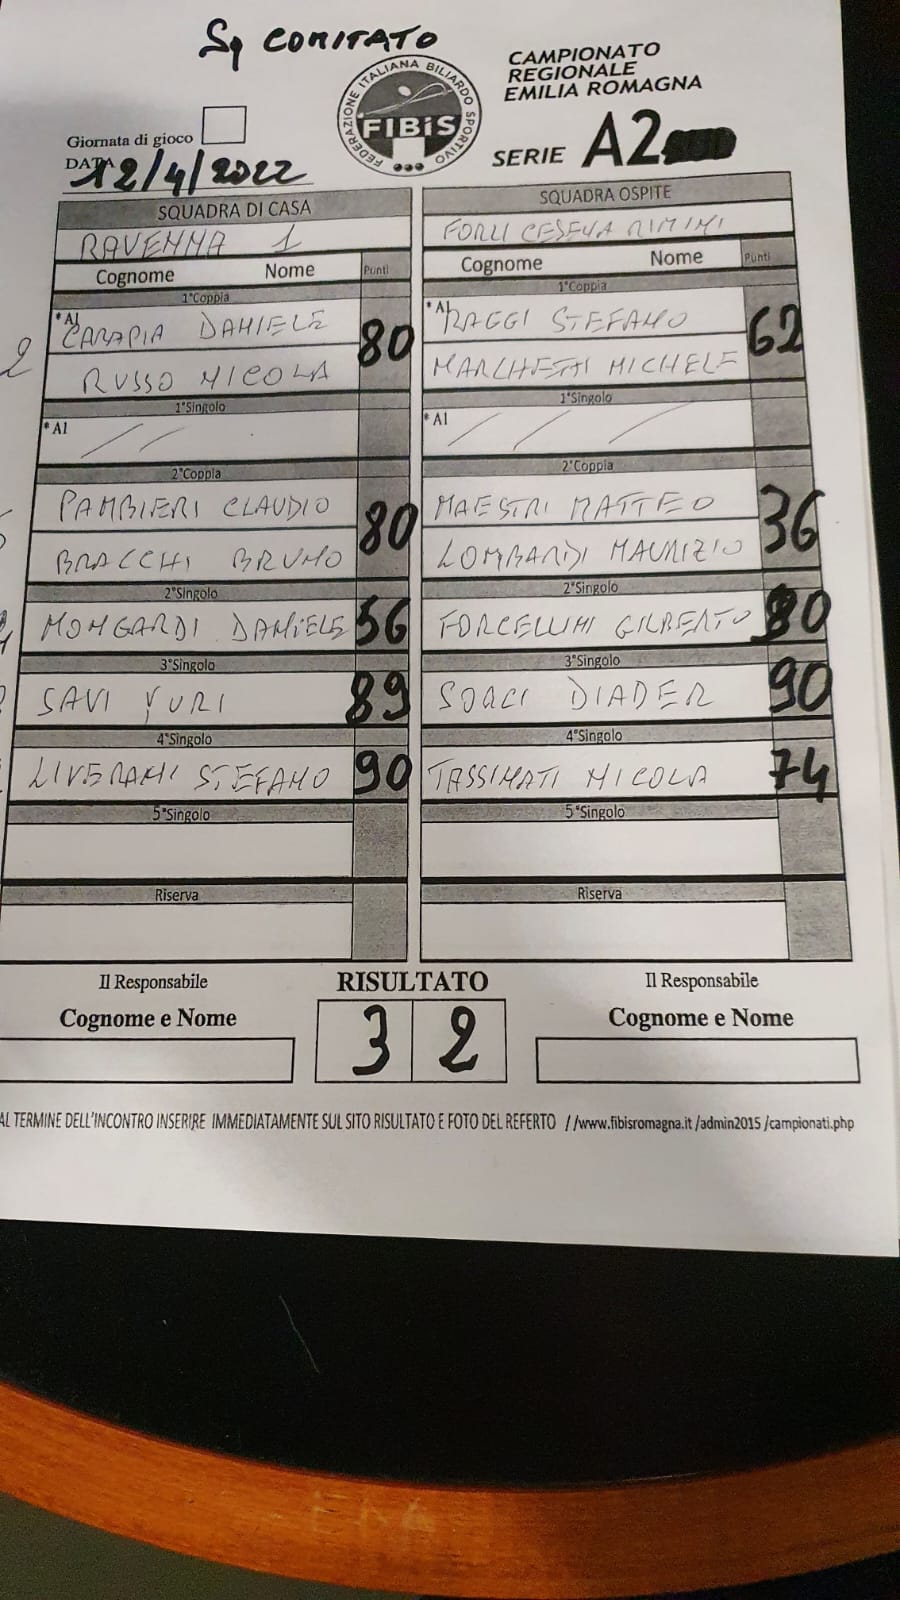 Sq COMITATO
FEDERAZIONE ITALIANA BILIARDO SPORTIVO
FIBiS
CAMPIONATO
REGIONALE
EMILIA ROMAGNA
SERIE A2
Giornata di gioco
DATA 12/4/2022
SQUADRA DI CASA SQUADRA OSPITE
RAVENNA 1 FORLI CESENA RIMINI
Cognome Nome Punti Cognome Nome Punti
1°Coppia 1°Coppia
*Al CARAPIA DANIELE 80 *Al RAGGI STEFANO 62
RUSSO NICOLA MARCHETTI MICHELE
1°Singolo 1°Singolo
*Al / / *Al / / /
2°Coppia 2°Coppia
PAMBIERI CLAUDIO 80 MAESTRI MATTEO 36
BRACCHI BRUNO LOMBARDI MAURIZIO
2°Singolo 2°Singolo
MONGARDI DANIELE 56 FORCELLINI GILBERTO 80
3°Singolo 3°Singolo
SAVI YURI 89 SORCI DIADER 90
4°Singolo 4°Singolo
LIVERANI STEFANO 90 TASSINATI NICOLA 74
5°Singolo 5°Singolo
Riserva Riserva
Il Responsabile RISULTATO Il Responsabile
Cognome e Nome 3 2 Cognome e Nome
AL TERMINE DELL'INCONTRO INSERIRE IMMEDIATAMENTE SUL SITO RISULTATO E FOTO DEL REFERTO //www.fibisromagna.it/admin2015/campionati.php